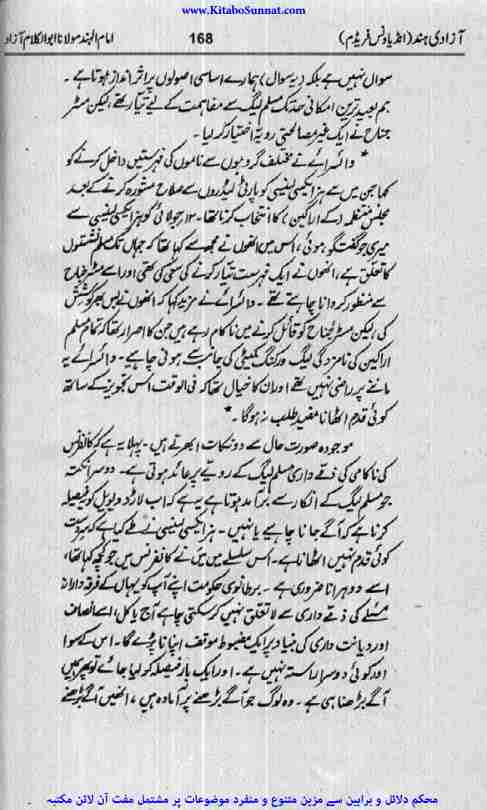 www.KitaboSunnat.com
آزادی ہند (انڈیا ونس فریڈم)
168
امام الہند مولانا ابوالکلام آزاد
سوال نہیں ہے بلکہ (یہ سوال) ہمارے اساسی اصولوں پر اثر انداز ہوتا ہے۔
ہم بعید ترین امکانی حد تک مسلم لیگ سے مفاہمت کے لیے تیار تھے، لیکن مسٹر
جناح نے ایک غیر مصالحتی رویہ اختیار کر لیا۔
" وائسرائے نے مختلف گروپوں سے ناموں کی فہرستیں داخل کرنے کو
کہا جن میں سے ہز ایکسی لینسی کو پارٹی لیڈروں سے صلاح مشورہ کرنے کے بعد
مجلس منتظمہ (کے اراکین) کا انتخاب کرنا تھا۔ جولائی کو ہز ایکسی لینسی سے
میری جو گفتگو ہوئی، اس میں انھوں نے مجھ سے کہا تھا کہ جہاں تک مسلم نشستوں
کا تعلق ہے، انھوں نے ایک فہرست تیار کرنے کی سعی کی تھی اور اسے مسٹر جناح
سے منظور کروانا چاہتے تھے۔ وائسرائے نے مزید کہا کہ انھوں نے بس بھر کوشش
کی، لیکن مسٹر جناح کو قائل کرنے میں ناکام رہے ہیں جن کا اصرار تھا کہ تمام مسلم
اراکین کی نامزدگی لیگ ورکنگ کمیٹی کی جانب سے ہونی چاہیے۔ وائسرائے یہ
ماننے پر راضی نہیں تھے اور ان کا خیال تھا کہ فی الوقت اس تجویز کے ساتھ
کوئی قدم اٹھانا مفید طلب نہ ہوگا۔"
موجودہ صورت حال سے دو نکات ابھرتے ہیں۔ پہلا یہ ہے کہ کانفرنس
کی ناکامی کی ذمے داری مسلم لیگ کے رویے پر عائد ہوتی ہے۔ دوسرا نکتہ
جو مسلم لیگ کے انکار سے برآمد ہوتا ہے یہ ہے کہ اب لارڈ ویول کو فیصلہ
کرنا ہے کہ آگے جانا چاہیے یا نہیں۔ ہز ایکسی لینسی نے طے کیا ہے کہ سردست
کوئی قدم نہیں اٹھانا ہے۔ اس سلسلے میں میں نے کانفرنس میں جو کچھ کہا تھا،
اسے دوہرانا ضروری ہے۔ برطانوی حکومت اپنے آپ کو یہاں کے فرقہ وارانہ
مسئلے کی ذمے داری سے لاتعلق نہیں کر سکتی چاہے آج یا کل، اسے انصاف
اور دیانت داری کی بنیاد پر ایک مضبوط موقف اپنانا پڑے گا۔ اس کے سوا
اور کوئی دوسرا راستہ نہیں ہے۔ اور ایک بار فیصلہ کر لیا جائے تو پھر ہمیں
آگے بڑھنا ہی ہے۔ وہ لوگ جو آگے بڑھنے پر آمادہ ہیں، انھیں آگے بڑھنے
محکم دلائل و براہین سے مزین متنوع و منفرد موضوعات پر مشتمل مفت آن لائن مکتبہ